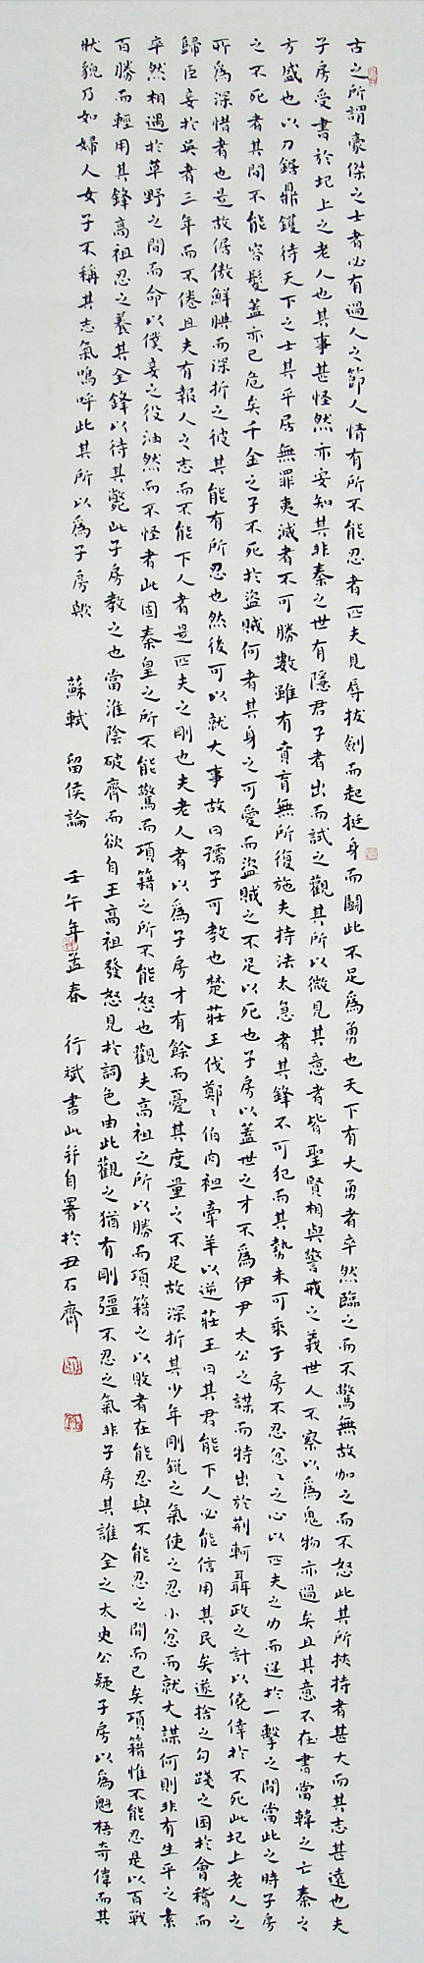 古之所謂豪傑之士者必有過人之節人情有所不能忍者匹夫見辱拔劍而起挺身而鬭此不足爲勇也天下有大勇者卒然臨之而不驚無故加之而不怒此其所挾持者甚大而其志甚遠也夫
子房受書於圯上之老人也其事甚怪然亦安知其非秦之世有隱君子者出而試之觀其所以微見其意者皆聖賢相與警戒之義世人不察以爲鬼物亦過矣且其意不在書當韓之亡秦之
方盛也以刀鋸鼎鑊待天下之士其平居無罪夷滅者不可勝數雖有賁育無所復施夫持法太急者其鋒不可犯而其勢未可乘子房不忍忿忿之心以匹夫之力而逞於一擊之間當此之時子房
之不死者其間不能容髮蓋亦已危矣千金之子不死於盜賊何者其身之可愛而盜賊之不足以死也子房以蓋世之才不爲伊尹太公之謀而特出於荆軻聶政之計以僥倖於不死此圯上老人之
所爲深惜者也是故倨傲鮮腆而深折之彼其能有所忍也然後可以就大事故曰孺子可教也楚莊王伐鄭鄭伯肉袒牽羊以逆莊王曰其君能下人必能信用其民矣遂捨之勾踐之困於會稽而
歸臣妾於吳者三年而不倦且夫有報人之志而不能下人者是匹夫之剛也夫老人者以爲子房才有餘而憂其度量之不足故深折其少年剛銳之氣使之忍小忿而就大謀何則非有生平之素
卒然相遇於草野之間而命以僕妾之役油然而不怪者此固秦皇之所不能驚而項籍之所不能怒也觀夫高祖之所以勝而項籍之以敗者在能忍與不能忍之間而已矣項籍惟不能忍是以百戰
百勝而輕用其鋒高祖忍之養其全鋒以待其斃此子房教之也當淮陰破齊而欲自王高祖發怒見於詞色由此觀之猶有剛彊不忍之氣非子房其誰全之太史公疑子房以爲魁梧奇偉而其
狀貌乃如婦人女子不稱其志氣嗚呼此其所以爲子房歟 蘇軾 留侯論 壬午年孟春 行斌書此并自署於丑石齋